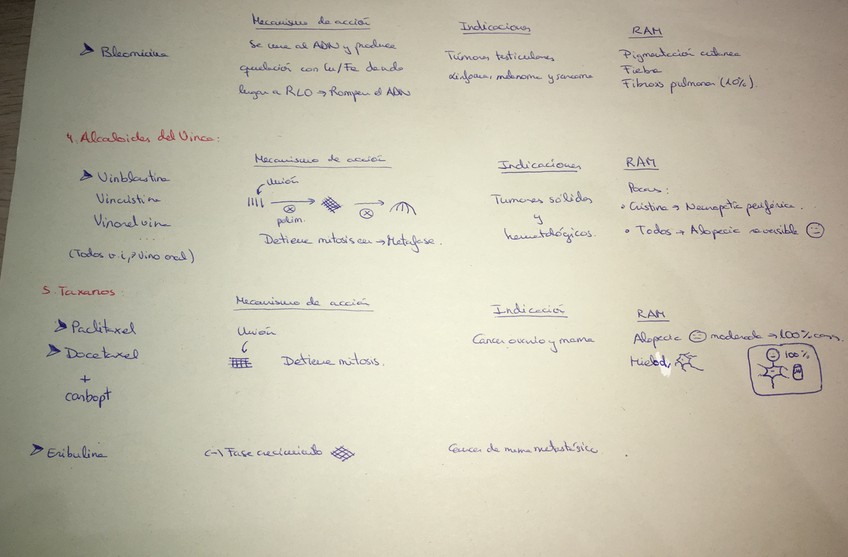 Mecanismo de acción
Indicaciones
RAM
➤ Bleomicina
Se une al ADN y produce
quelación con Cu/Fe dando
lugar a RLO → Rompen el ADN
Túmores testiculares
linfoma, melanoma y sarcoma
Pigmentación cutánea
Fiebre
Fibrosis pulmonar (10%)
4. Alcaloides del Vinca:
Mecanismo de acción
Indicaciones
RAM
➤ Vinblastina
Vincristina
Vinorelvina
...
(Todos v.i,
vino oral)
Unión
polim.
Detiene mitosis en → Metafase.
Tumores sólidos
y
hematológicos.
Pocas:
• Cristina → Neuropatía periférica.
• Todos → Alopecia reversible
5. Taxanos:
Mecanismo de acción
Indicación
RAM
➤ Paclitaxel
➤ Docetaxel
+
carbopt
Unión
Detiene mitosis.
Cancer ovario y mama
Alopecia moderada → 100%
Mielod
100%
➤ Eribulina
(-) Fase crecimiento
Cancer de mama metastásico